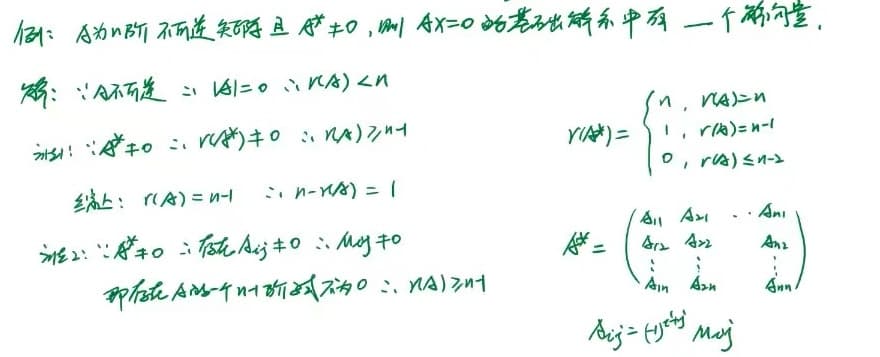 例: A为n阶不可逆矩阵且 A*≠0, 则 AX=0 的基础解系中有 一 个解向量.
解: ∵A不可逆 ∴ |A|=0 ∴ r(A)<n
法1: ∵A*≠0 ∴ r(A*)≠0 ∴ r(A)≥n-1
综上: r(A)=n-1 ∴ n-r(A)=1
法2: ∵A*≠0 ∴存在Aij≠0 ∴ Mij≠0
即存在A的一个n-1阶子式不为0 ∴ r(A)≥n-1
r(A*)= { n , r(A)=n
1 , r(A)=n-1
0 , r(A)≤n-2
A*= ( A11 A21 ·· An1
A12 A22 An2
⋮ ⋮ ⋮
A1n A2n Ann )
Aij=(-1)^{i+j} Mij